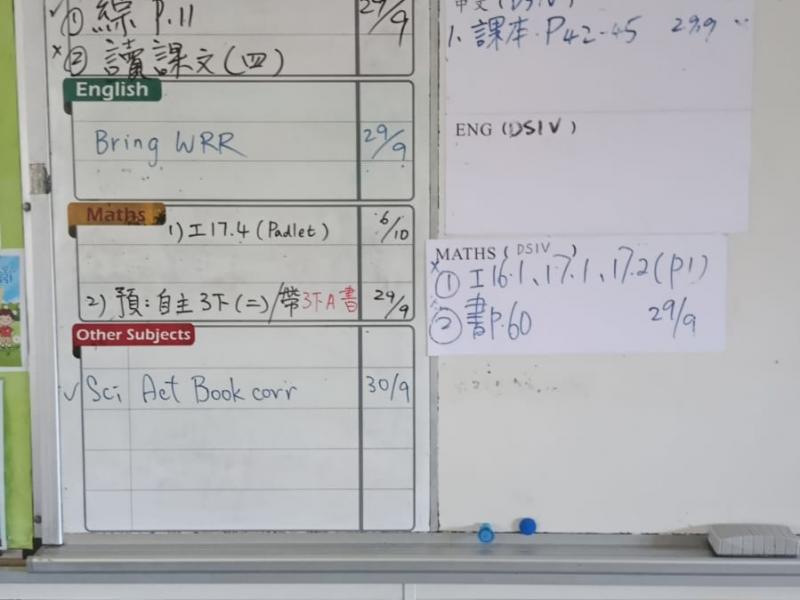 ① 綜 P.11 29/9
② 讀課文(四)
English
Bring WRR 29/9
Maths
1) 工17.4 (Padlet) 6/10
2) 預:自主3下(二)/帶3下A書 29/9
Other Subjects
Sci Act Book corr 30/9
中文 (DSIV)
1. 課本.P42-45 29.9
ENG (DSIV)
MATHS (DSIV)
① 工16.1、17.1、17.2(P1)
② 書P.60 29/9